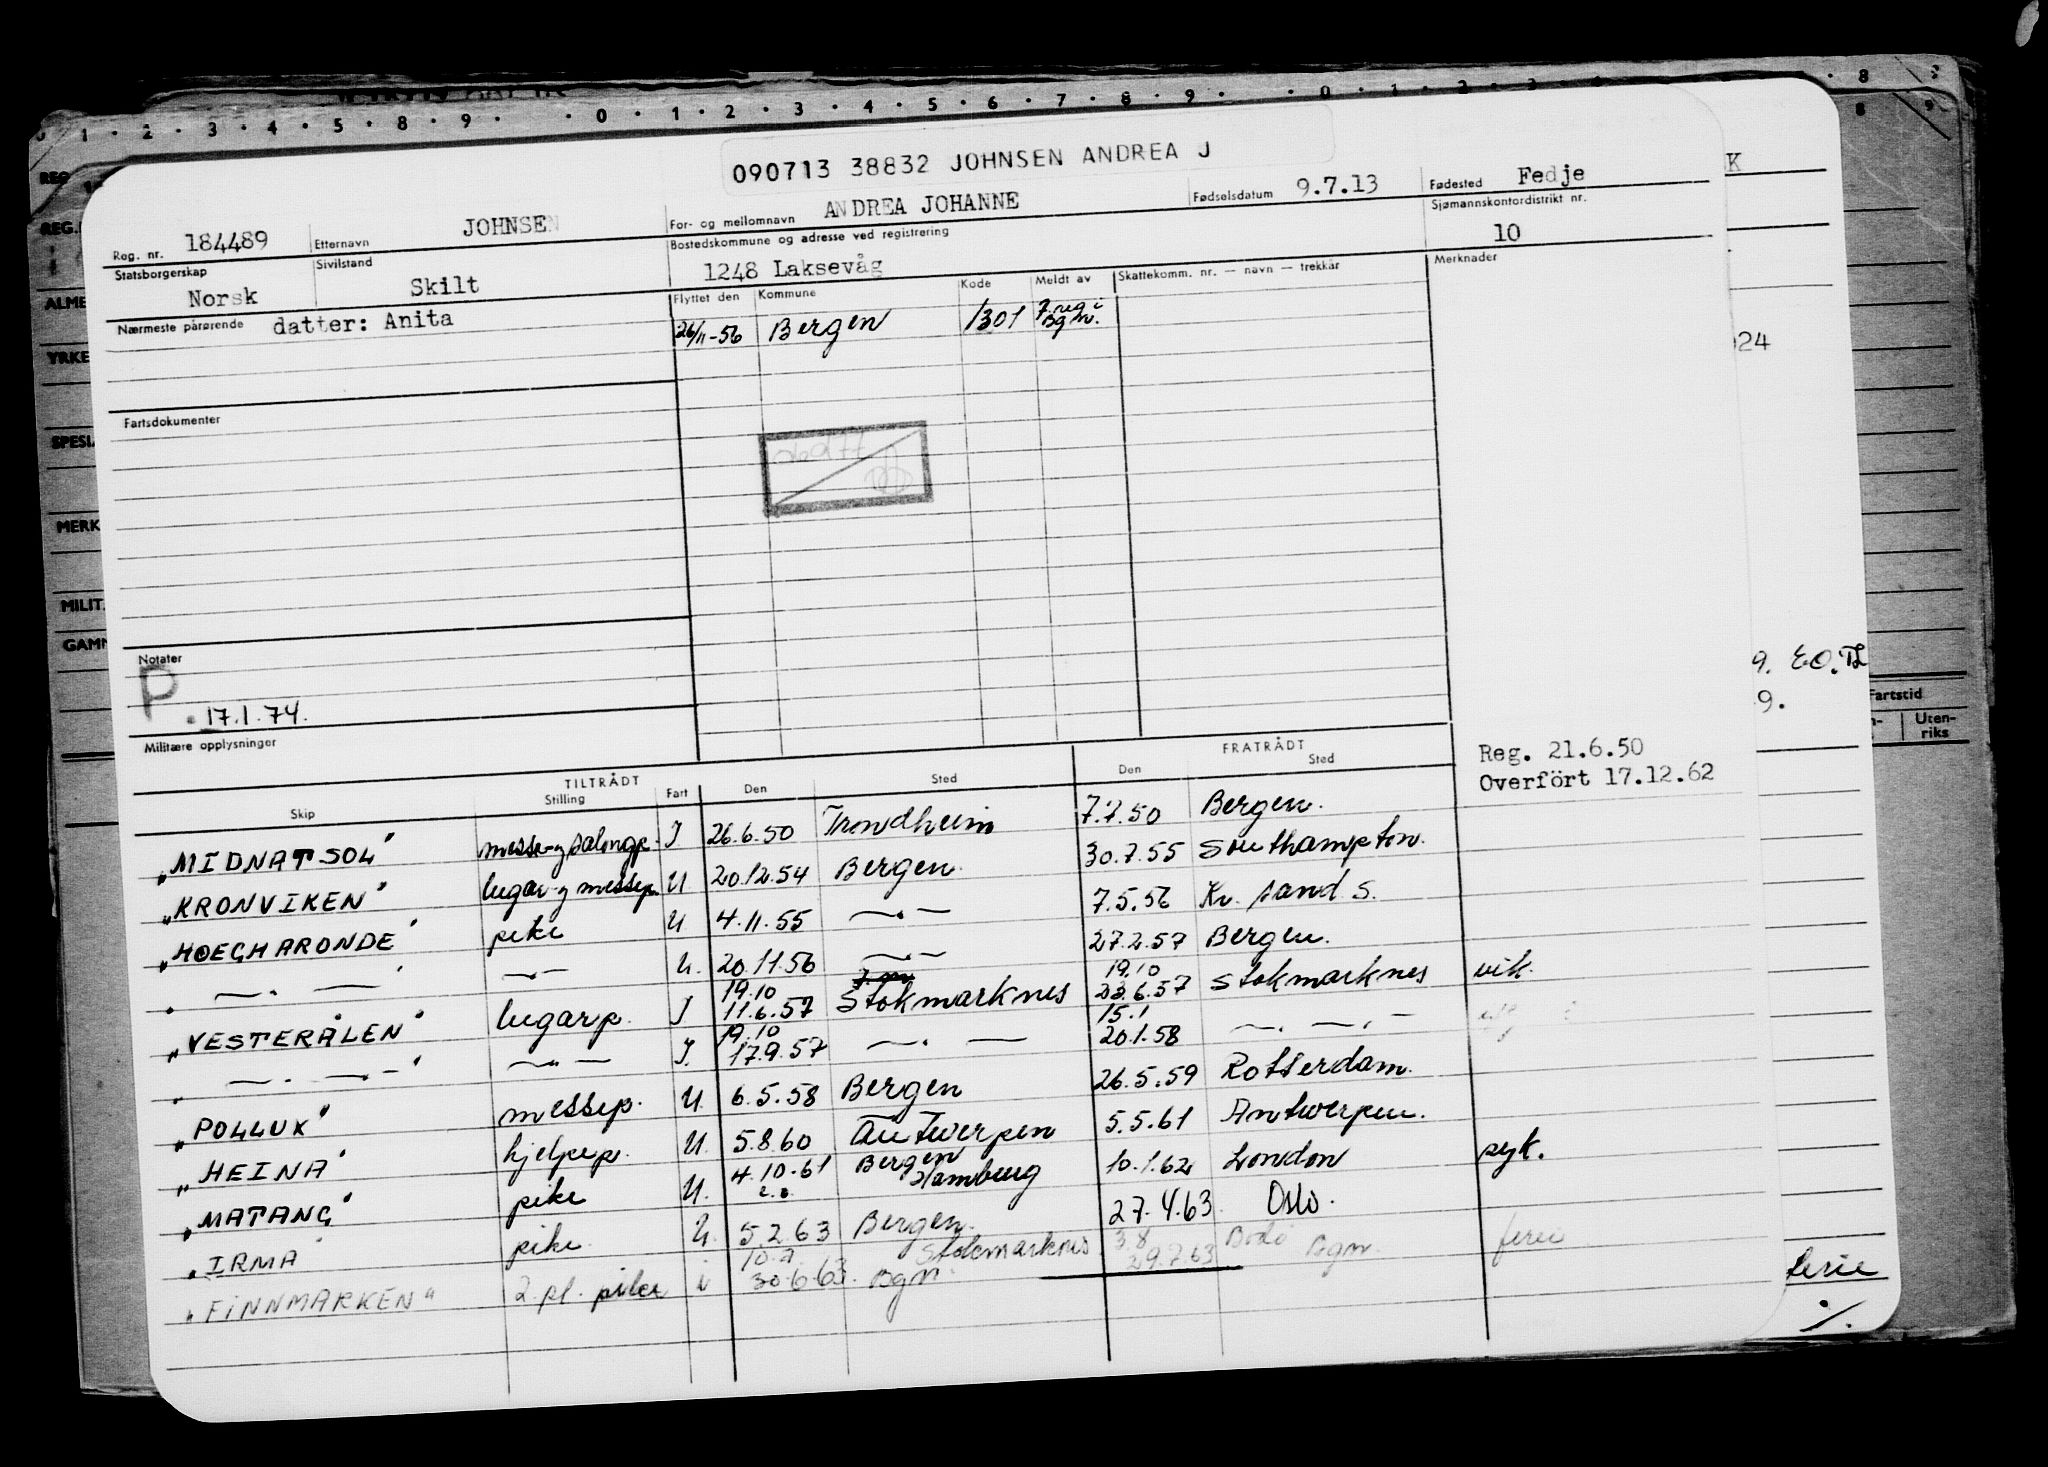 090713 38832 JOHNSEN ANDREA J
Reg. nr. 184489 Etternavn JOHNSEN For- og mellomnavn ANDREA JOHANNE Fødselsdatum 9.7.13 Fødested Fedje
Statsborgerskap Norsk Sivilstand Skilt Bostedskommune og adresse ved registrering 1248 Laksevåg Sjømannskontordistrikt nr. 10
Nærmeste pårørende datter: Anita Flyttet den Kommune Kode Meldt av Skattekomm. nr. — navn — trekkår Merknader
26/11-56 Bergen 1301 F.reg i Bgn.
Fartsdokumenter
Notater
P
17.1.74.
Militære opplysninger
Reg. 21.6.50
Overfört 17.12.62
TILTRÅDT FRATRÅDT
Skip Stilling Fart Den Sted Den Sted
"MIDNATSOL" messe- og salongp. I 26.6.50 Trondheim 7.7.50 Bergen.
"KRONVIKEN" lugar- og messep. U 20.12.54 Bergen. 30.7.55 Southampton.
"HOEGH ARONDE" pike U 4.11.55 —"— 7.5.56 Kr. sand S.
" —"— " —"— U. 20.11.56 —"— 27.2.57 Bergen.
"VESTERÅLEN" lugarp. I 19.10 11.6.57 Stokmarknes 19.10 23.6.57 Stokmarknes vik.
" —"— " —"— I. 19.10 17.9.57 —"— 15.1 20.1.58 —"—
"POLLUX" messep. U. 6.5.58 Bergen 26.5.59 Rotterdam.
"HEINA" hjelpep. U. 5.8.60 Antwerpen 5.5.61 Antwerpen.
"MATANG" pike U. 4.10.61 Bergen Hamburg 10.1.62 London syk.
"IRMA" pike U. 5.2.63 Bergen. 27.4.63 Oslo.
"FINNMARKEN" 2. pl. pike i 10.7 30.6.63. Stokmarknes Bgn. 3.8 29.7.63 Bodø Bgn. ferie
REG.
ALME
YRKE
SPESIA
MERK
MILIT.
GAMM
K
024
9. E.O.
9.
Fartstid
Uten-
riks
ferie